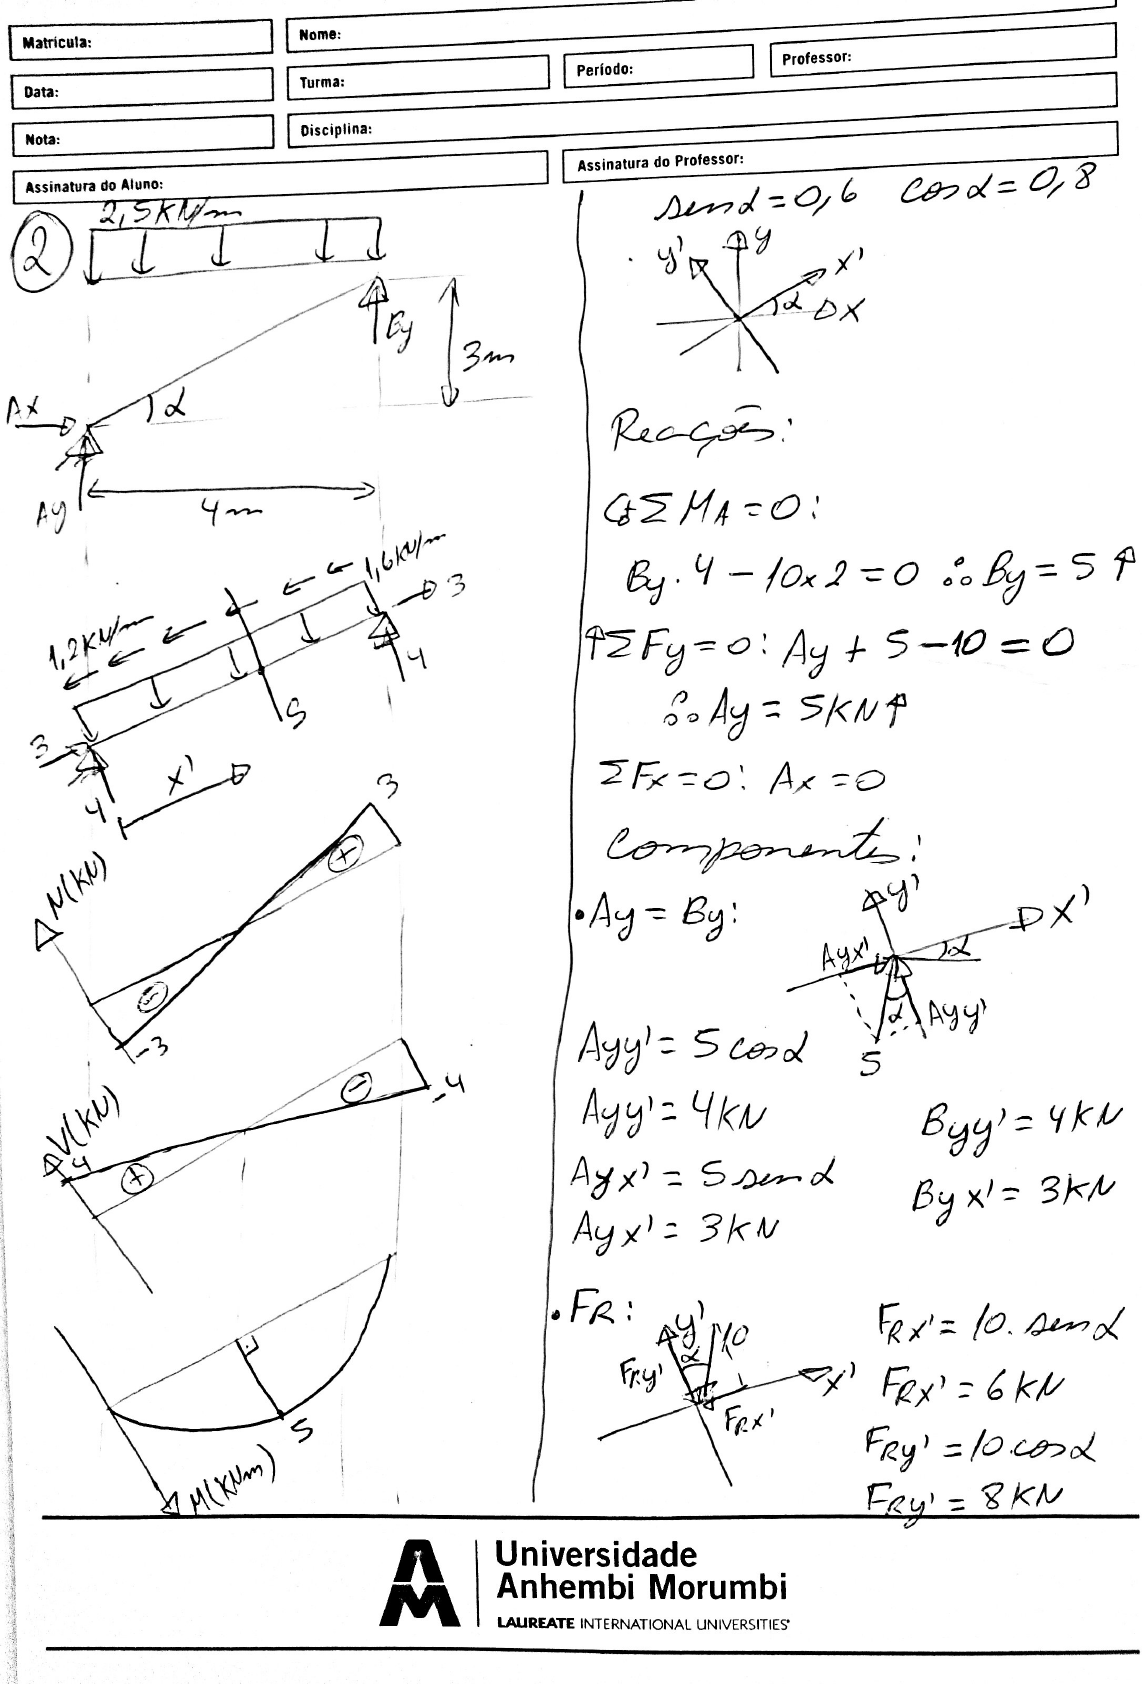 Matrícula:
Nome:
Data:
Turma:
Período:
Professor:
Nota:
Disciplina:
Assinatura do Aluno:
Assinatura do Professor:
2
2,5KN/m
By
3m
Ax
α
Ay
4m
1,6KN/m
3
1,2KN/m
4
S
3
4
x'
N(KN)
3
+
-
-3
V(KN)
4
+
-
-4
5
M(KNm)
senα=0,6 cosα=0,8
y' y x'
α x
Reações:
+ΣMA=0:
By.4-10x2=0 ∴By=5↑
↑ΣFy=0: Ay+5-10=0
∴Ay=5KN↑
ΣFx=0: Ax=0
Componentes:
•Ay=By:
y'
x'
Ayx' α
α Ayy'
5
Ayy'=5cosα
Ayy'=4KN
Byy'=4KN
Ayx'=5senα
Byx'=3KN
Ayx'=3KN
•FR:
y' 10
α
FRy'
x'
FRx'
FRx'=10.senα
FRx'=6KN
FRy'=10.cosα
FRy'=8KN
Universidade
Anhembi Morumbi
LAUREATE INTERNATIONAL UNIVERSITIES®